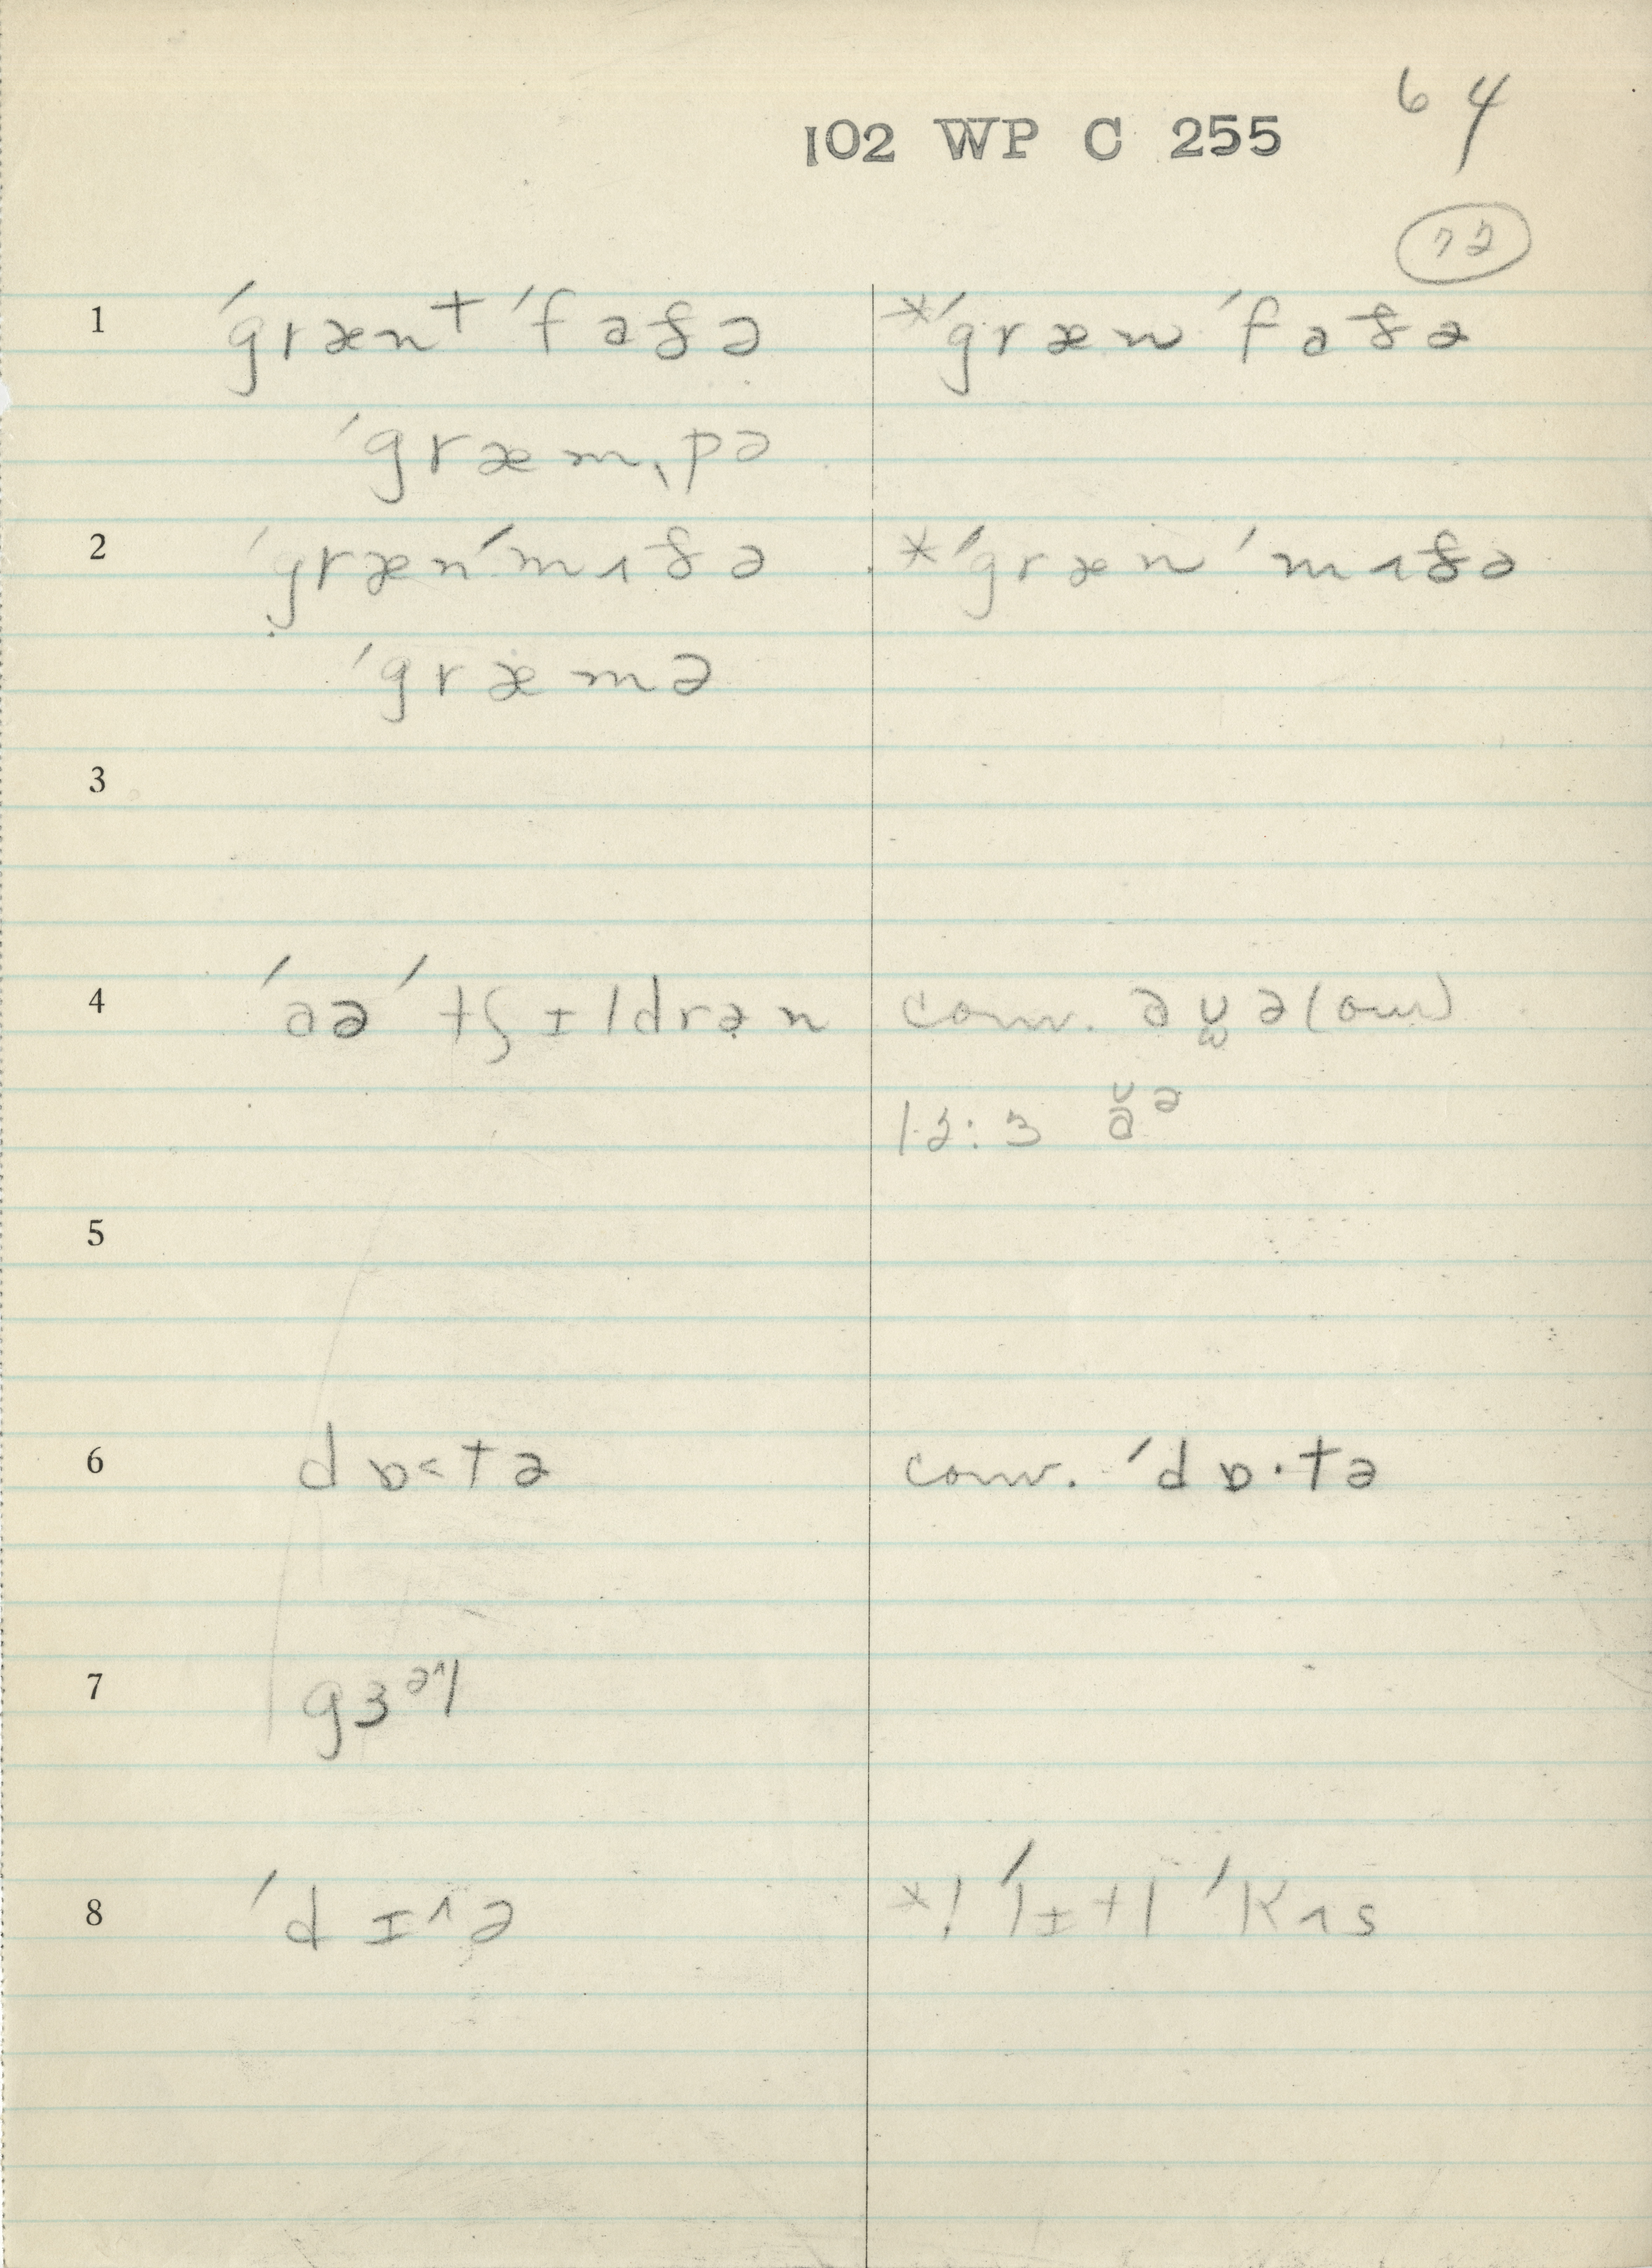 64
102 WP C 255
72
1 ˈgrænᵗ ˈfɑðə *ˈgræn ˈfɑðə
ˈgræmˌpə
2 ˈgrænˈmʌðə *ˈgræn ˈmʌðə
ˈgræmə
3
4 ˈɑə ˈtʃɪldrən conv. (our)
12:3 ɑ̆ᵊ
5
6 dɒ<tə conv. ˈdɒ·tə
7 gɜᵊ^l
8 ˈdɪ^ə *! ˈlɪtl ˈkʌs